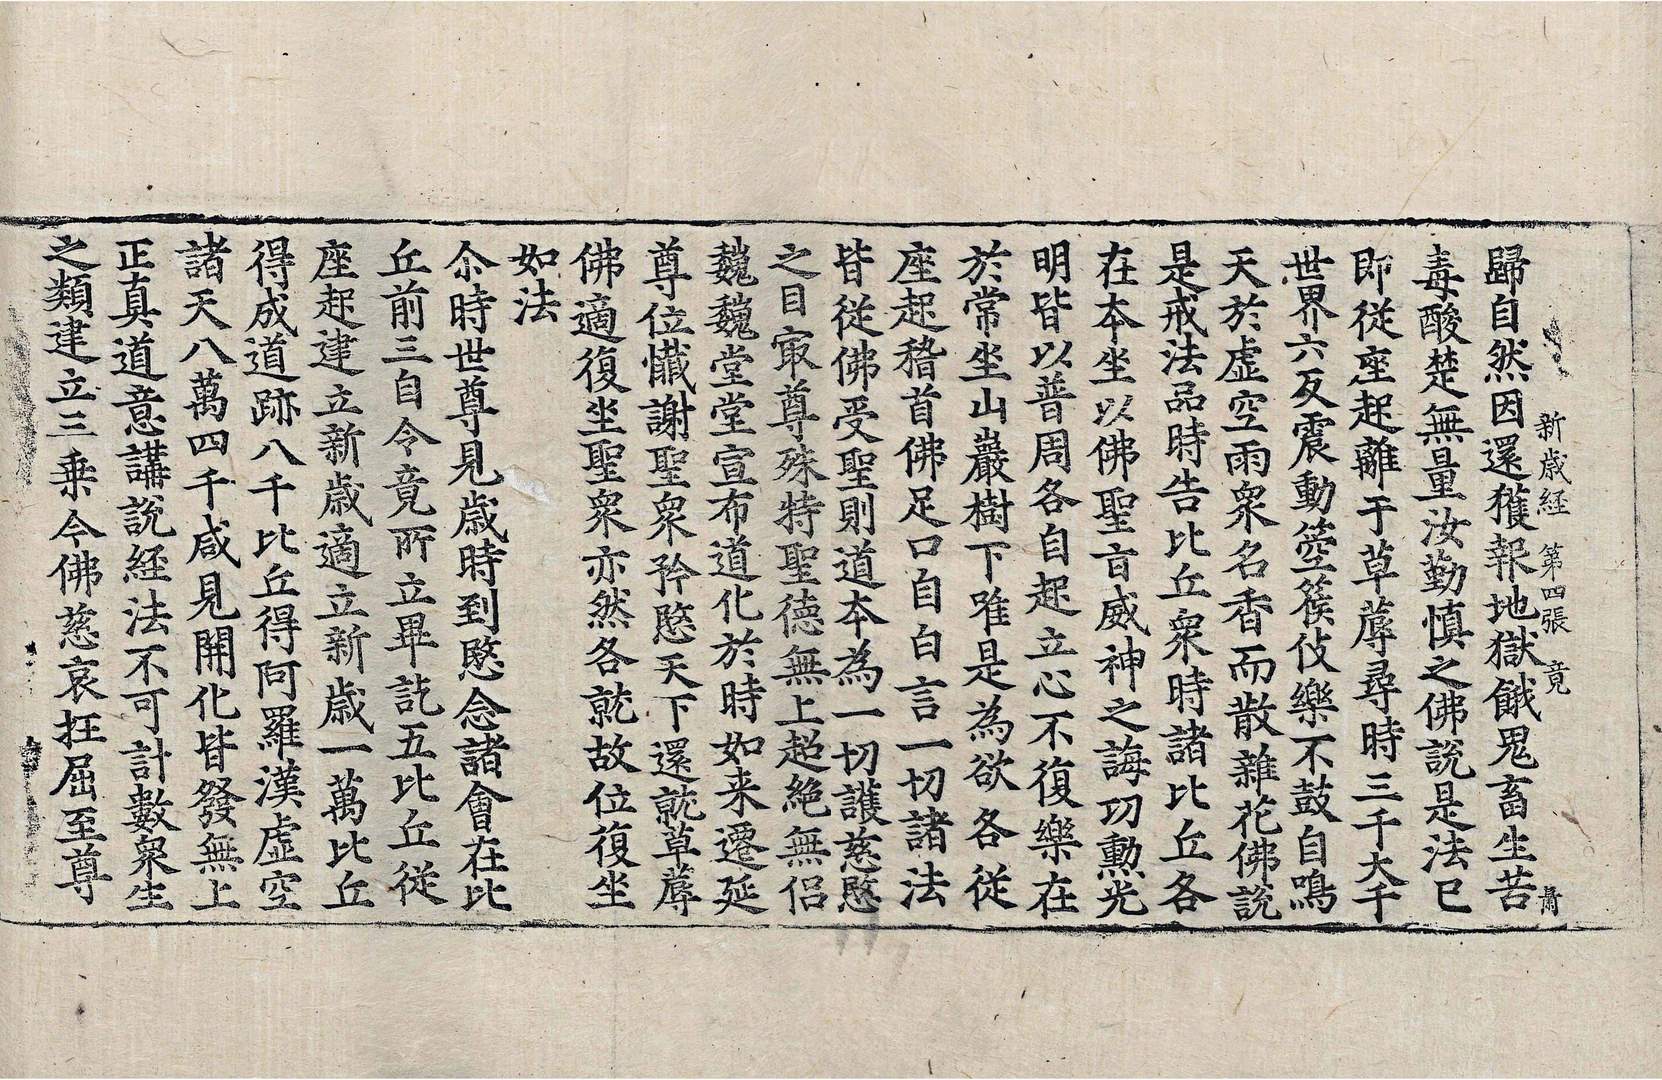 新歲経 第四張 竟
歸自然因還獲報地獄餓鬼畜生苦
毒酸楚無量汝勤慎之佛說是法已
即從座起離于草蓐尋時三千大千
世界六反震動箜篌伎樂不鼓自鳴
天於虛空雨衆名香而散雜花佛說
是戒法品時告比丘衆時諸比丘各
在本坐以佛聖旨威神之誨功勳光
明皆以普周各自起立心不復樂在
於常坐山巖樹下唯是為欲各從
座起稽首佛足口自白言一切諸法
皆從佛受聖則道本為一切護慈愍
之目㝡尊殊特聖德無上超絶無侣
巍巍堂堂宣布道化於時如来遷延
尊位懺謝聖衆矜愍天下還就草蓐
佛適復坐聖衆亦然各就故位復坐
如法
尒時世尊見歲時到愍念諸會在比
丘前三自令竟所立畢訖五比丘從
座起建立新歲適立新歲一萬比丘
得成道跡八千比丘得阿羅漢虛空
諸天八萬四千咸見開化皆發無上
正真道意講說経法不可計數衆生
之類建立三乗今佛慈哀抂屈至尊